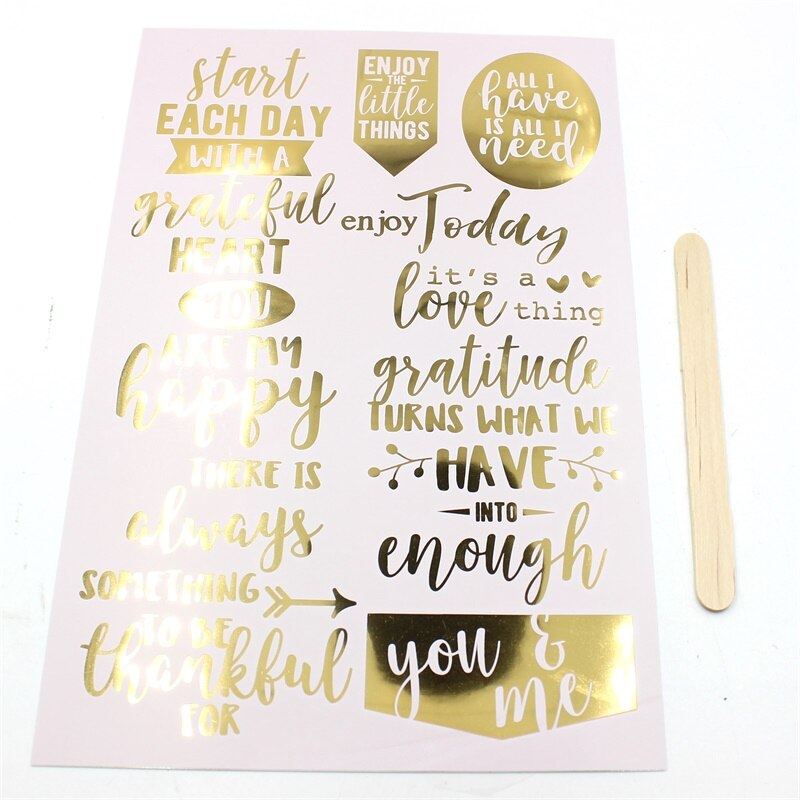 start
EACH DAY
WITH A
grateful
HEART
YOU
ARE MY
happy
THERE IS
always
SOMETHING
TO BE
thankful
FOR
ENJOY
THE
little
THINGS
ALL I
have
IS ALL I
need
enjoy Today
it's a
love thing
gratitude
TURNS WHAT WE
HAVE
INTO
enough
you &
me